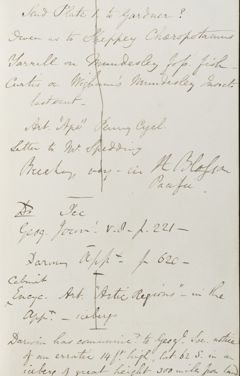 Send Plate 1 to Gardner?
Owen as to Sheppey Chæropotamus
Yarrell on Mundesley f.p. fish -
Curtis on Wigham's Mundesley Insect
last out -
Art. "Ape" Penny Cycl.
Letter to Mr Spedding
Beechey voy - in H. Blossom
Pacific
Dr Tec
Geog. Journ. v. 8 - p. 221 -
Darwin App - p 620 -
Cabinet
Encyc. Art. "Arctic Regions" - in the
App. - icebergs
Darwin has communic.d to Geog. Soc. notice
of an erratic 14 ft. high, lat 62 S. in an
iceberg of great height 300 mile from land